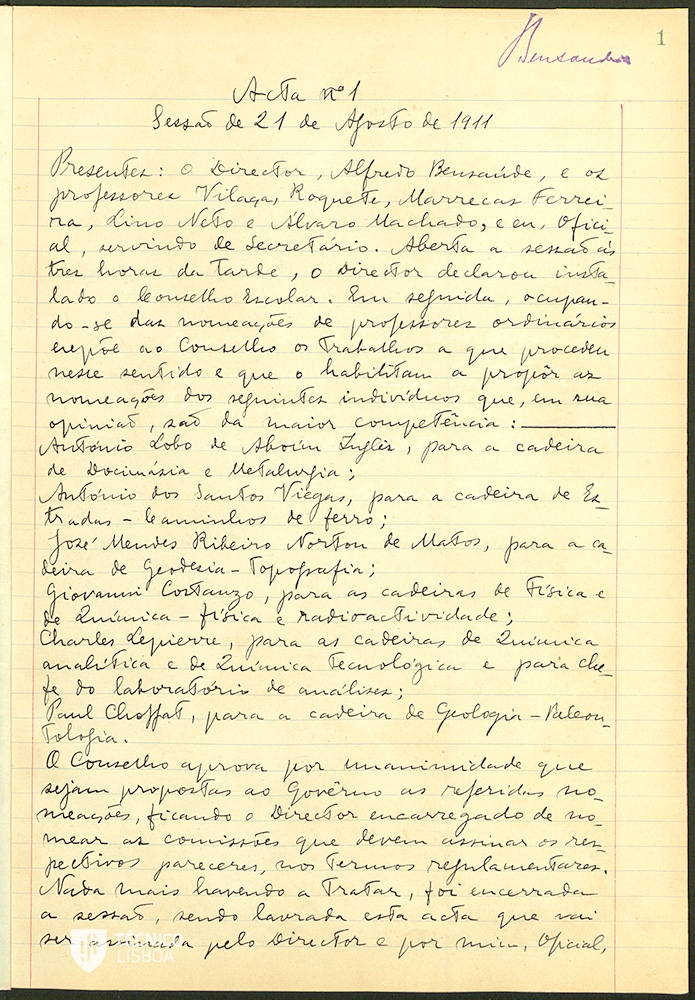 Bensaude
1
Acta nº 1
Sessão de 21 de Agosto de 1911
Presentes: o Director, Alfredo Bensaúde, e os
professores Vilaça, Roquete, Marrecas Ferrei-
ra, Lino Neto e Alvaro Machado, e eu, Ofici-
al, servindo de Secretário. Aberta a sessão ás
tres horas da tarde, o Director declarou insta-
lado o Conselho Escolar. Em seguida, ocupan-
do-se das nomeações de professores ordinários
expõe ao Conselho os trabalhos a que procedeu
neste sentido e que o habilitam a propôr as
nomeações dos seguintes indivíduos que, em sua
opinião, são da maior competência:
António Lobo de Aboim Inglês, para a cadeira
de Docimásia e Metalurgia;
António dos Santos Viegas, para a cadeira de Es-
tradas - Caminhos de ferro;
José Mendes Ribeiro Norton de Matos, para a ca-
deira de Geodesia - Topografia;
Giovanni Costanzo, para as cadeiras de Física e
de Química - física e radioactividade;
Charles Lepierre, para as cadeiras de Química
analítica e de Química Tecnológica e para che-
fe do laboratório de análises;
Paul Choffat, para a cadeira de Geologia - Paleon-
tologia.
O Conselho aprova por unanimidade que
sejam propostas ao Govêrno as referidas no-
meações, ficando o Director encarregado de no-
mear as comissões que devem assinar os res-
pectivos pareceres, nos termos regulamentares.
Nada mais havendo a tratar, foi encerrada
a sessão, sendo lavrada esta acta que vai
ser assinada pelo Director e por mim, Oficial,
TÉCNICO
LISBOA